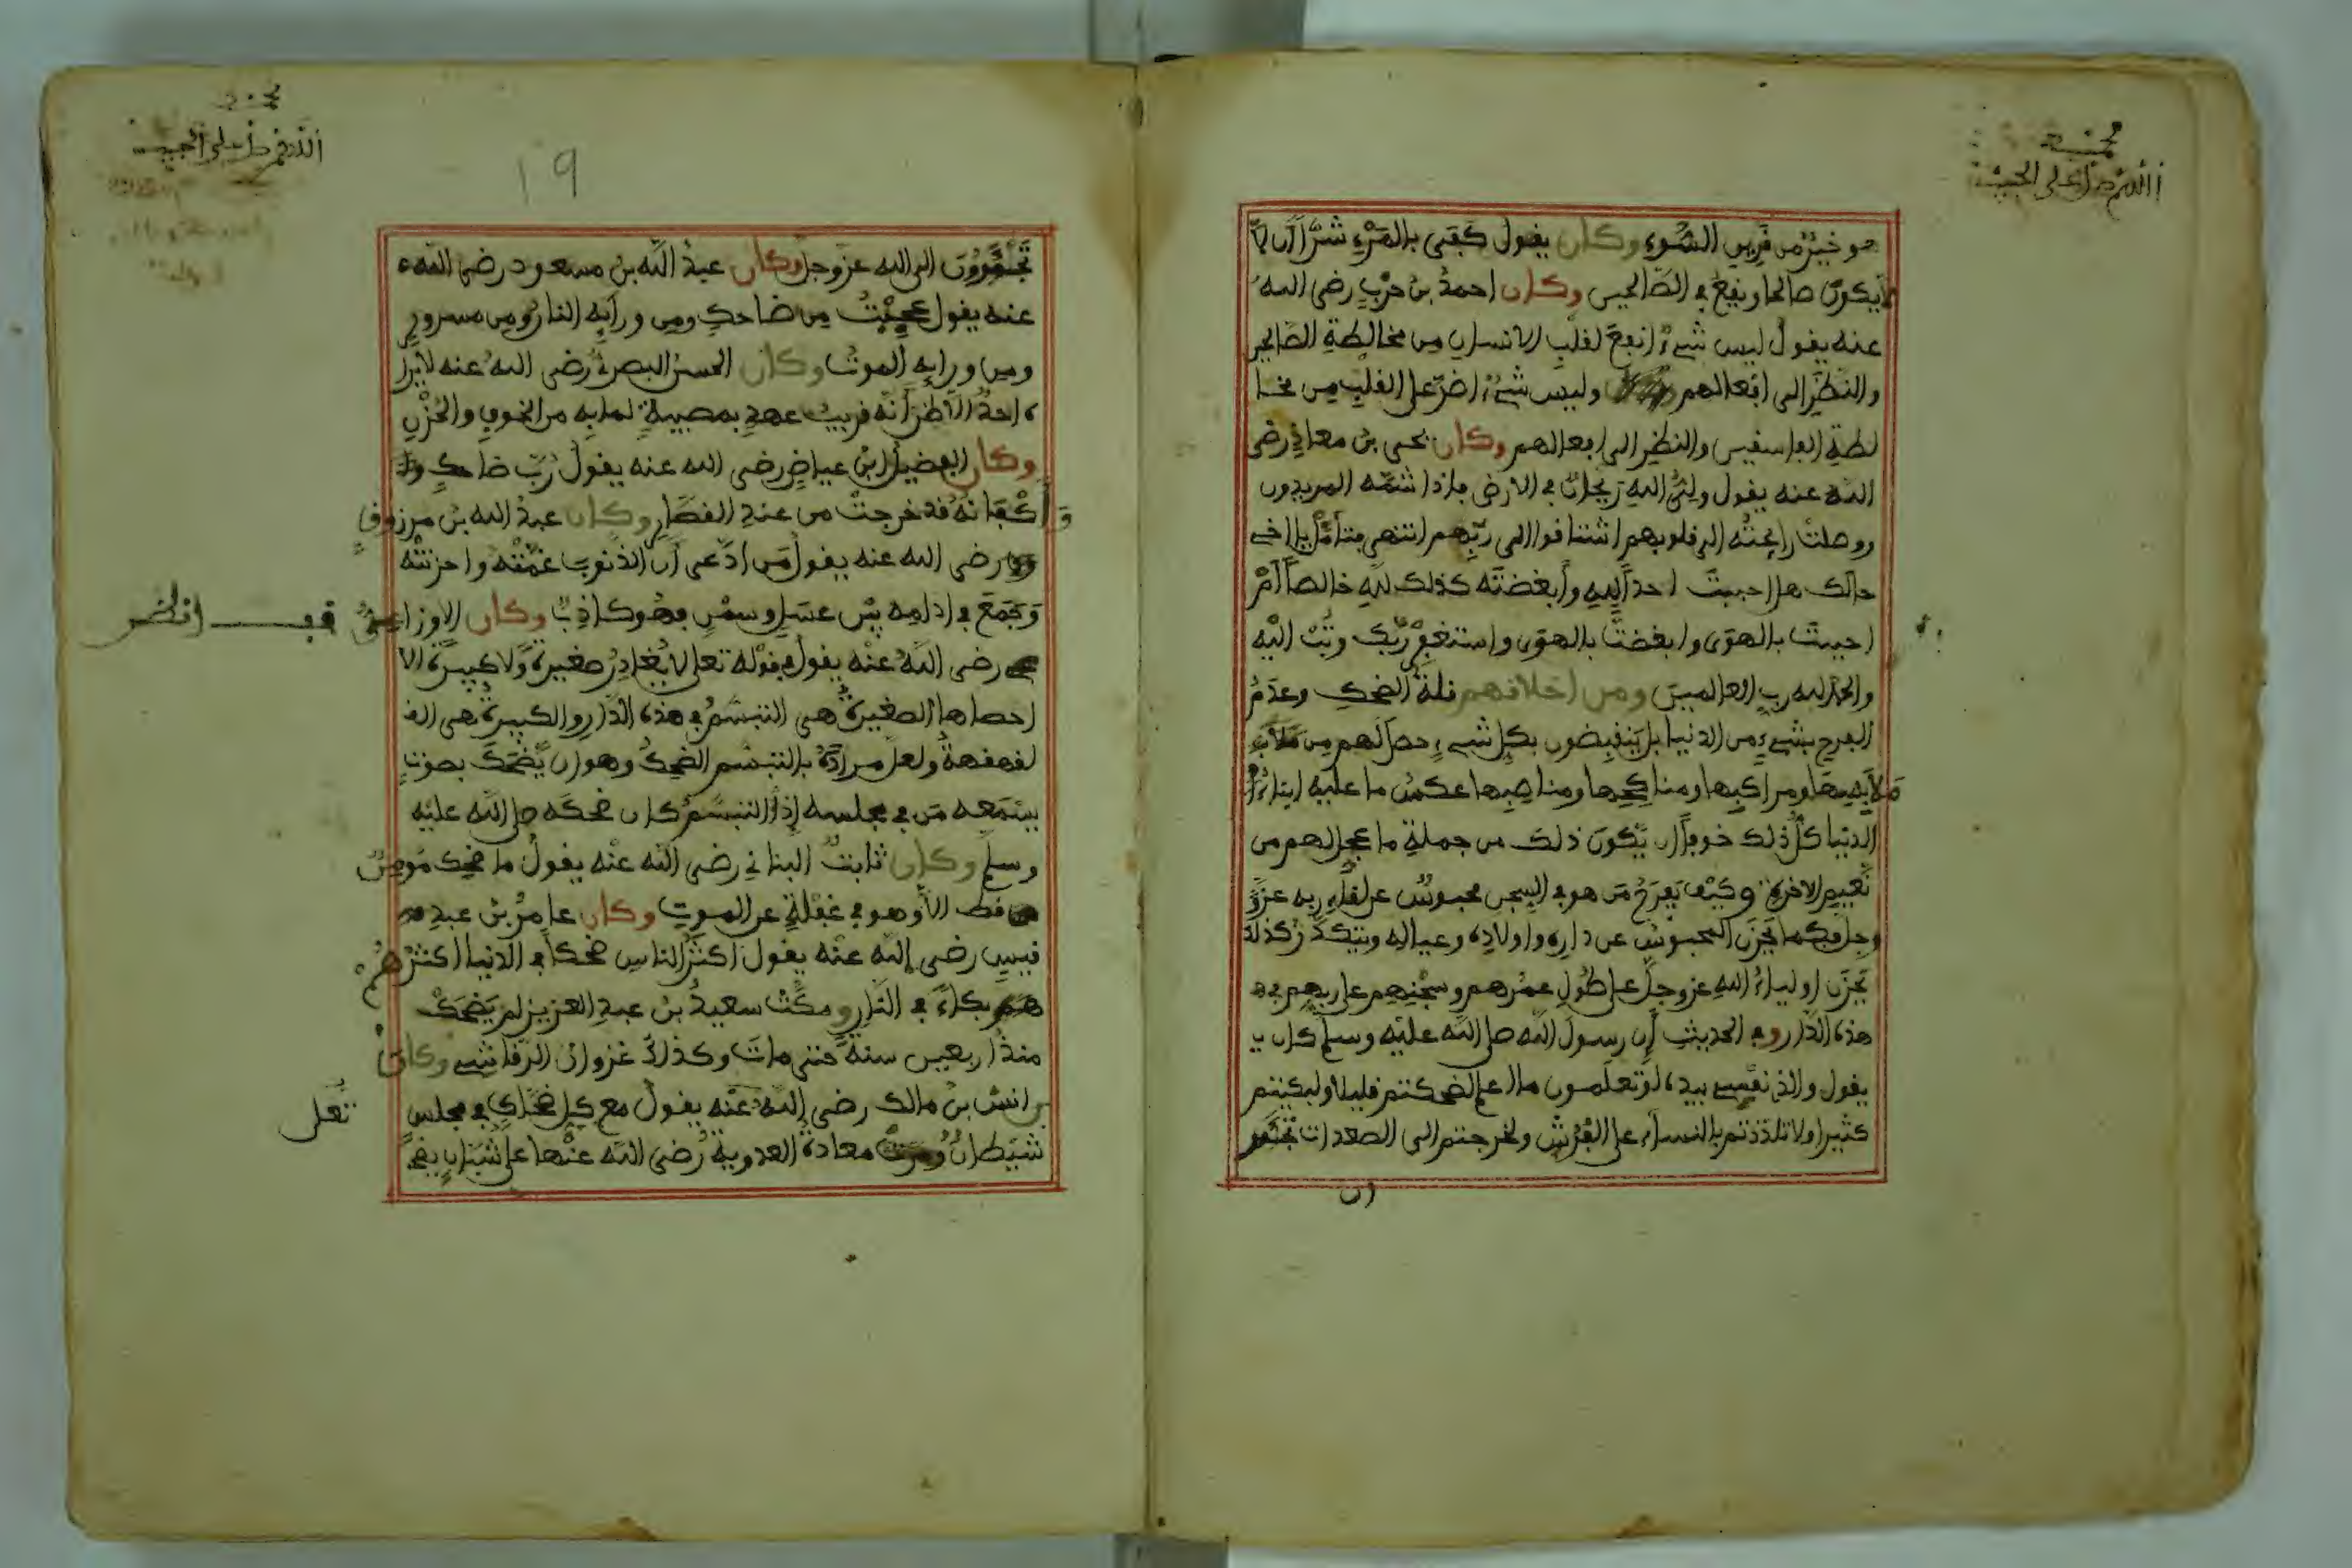 محمد
اللهم صل على الحبيب
هو خير من قرين السوء وكان يقول كفى بالمرء شرا أن لا
لا يكون صالحا ويقع في الصالحين وكان احمد بن حرب رضي الله
عنه يقول ليس شيء انفع لقلب الانسان من مخالطة الصالحين
والنظر الى افعالهم وليس شيء اضر على القلب من مخا
لطة الفاسقين والنظر الى افعالهم وكان يحيى بن معاذ رضي
الله عنه يقول ولي الله ريحان في الارض فإذا شمه المريدون
ووصلت رائحته الى قلوبهم اشتاقوا الى ربهم انتهى فتأمل يا اخي
حالك هل احببت احدا لله وأبغضته كذلك لله خالصا أم
احببت بالهوى وابغضت بالهوى واستغفر ربك وتب اليه
والحمد لله رب العالمين ومن اخلاقهم قلة الضحك وعدم
الفرح بشيء من الدنيا بل ينقبضون بكل شيء حصل لهم من
ملابسها ومراكبها ومناكحها ومناصبها عكس ما عليه ابناء
الدنيا كل ذلك خوفا ان يكون ذلك من جملة ما عجل لهم من
نعيم الاخرة وكيف يفرح من هو في السجن محبوس عن لقاء ربه عز و
وجل فكما يحزن المحبوس عن داره واولاده وعياله ويتكدر كذلك
يحزن اولياء الله عز وجل على طول عمرهم وسجنهم على ربهم في ه
هذه الدار وفي الحديث إن رسول الله صلى الله عليه وسلم كان ي
يقول والذي نفسي بيده لو تعلمون ما اعلم لضحكتم قليلا ولبكيتم
كثيرا ولا تلذذتم بالنساء على الفرش ولخرجتم الى الصعدات تجئرو
ون
محمد
اللهم صل على الحبيب
19
تجئرون الى الله عز وجل وكان عبد الله بن مسعود رضي الله
عنه يقول عجبت من ضاحك ومن ورايه النار ومن مسرور
ومن ورايه الموت وكان الحسن البصري رضي الله عنه لا يرا
ه احد الا ظن أنه قريب عهد بمصيبة لما به من الخوف والحزن
وكان الفضيل ابن عياض رضي الله عنه يقول رب ضاحك
وأكفانه قد خرجت من عند القصار وكان عبد الله بن مرزوق
رضي الله عنه يقول من ادعى أن الذنوب غمته واحزنته
وجمع في ادامه بين عسل وسمن فهو كاذب وكان الاوزاعي
رضي الله عنه يقول في قوله تعلى لا يغادر صغيرة ولا كبيرة الا
قف انظر
احصاها الصغيرة هي التبسم في هذه الدار والكبيرة هي الق
لقهقهة ولعل مراده بالتبسم الضحك وهو ان يضحك بصوت
يسمعه من في مجلسه إذ التبسم كان ضحكه صلى الله عليه
وسلم وكان ثابت البناني رضي الله عنه يقول ما ضحك مومن
قط الا وهو في غفلة عن الموت وكان عامر بن عبد
قيس رضي الله عنه يقول اكثر الناس ضحكا في الدنيا اكثرهم
بكاء في النار ومكث سعيد بن عبد العزيز لم يضحك
منذ اربعين سنة حتى مات وكذلك غزوان الرقاشي وكان
انس بن مالك رضي الله عنه يقول مع كل ضحاك في مجلس
شيطان ومرت معاذة العدوية رضي الله عنها على شباب يضح
تعلى